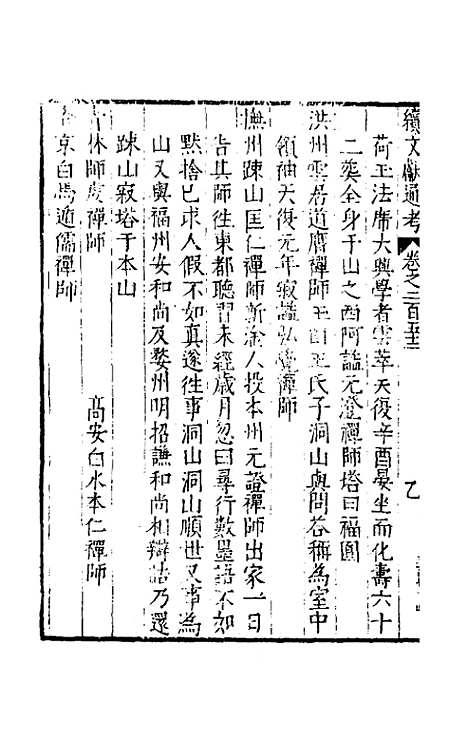 續文獻通考
卷之二百五十三
荷玉法席大興學者雲萃天復辛酉晏坐而化壽六十
二葬全身于山之西阿謚元澄禪師塔曰福圓
洪州雲居道膺禪師玉田王氏子洞山與問荅稱為室中
領袖天復元年寂謚弘覺禪師
撫州疎山匡仁禪師新淦人投本州元證禪師出家一日
告其師往東都聽習未經歲月忽曰尋行數墨語不如
默捨己求人假不如真遂往事洞山洞山順世又事為
山又與福州安和尚及婺州明招謙和尚相辯詰乃還
疎山寂塔于本山
林師虔禪師
高安白水本仁禪師
京白馬遁儒禪師